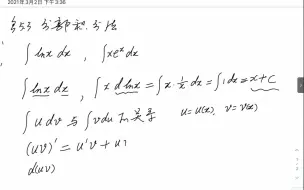 2021年3月2日 下午3:36
§5.3 分部积分法
∫ lnx dx , ∫xeˣdx
∫ lnx dx , ∫ x dlnx = ∫ x·1/x dx = ∫1dx = x+C
∫ u dv 与 ∫ v du 的关系 u= u(x), v= v(x)
(uv)' = u'v + u
d(uv)